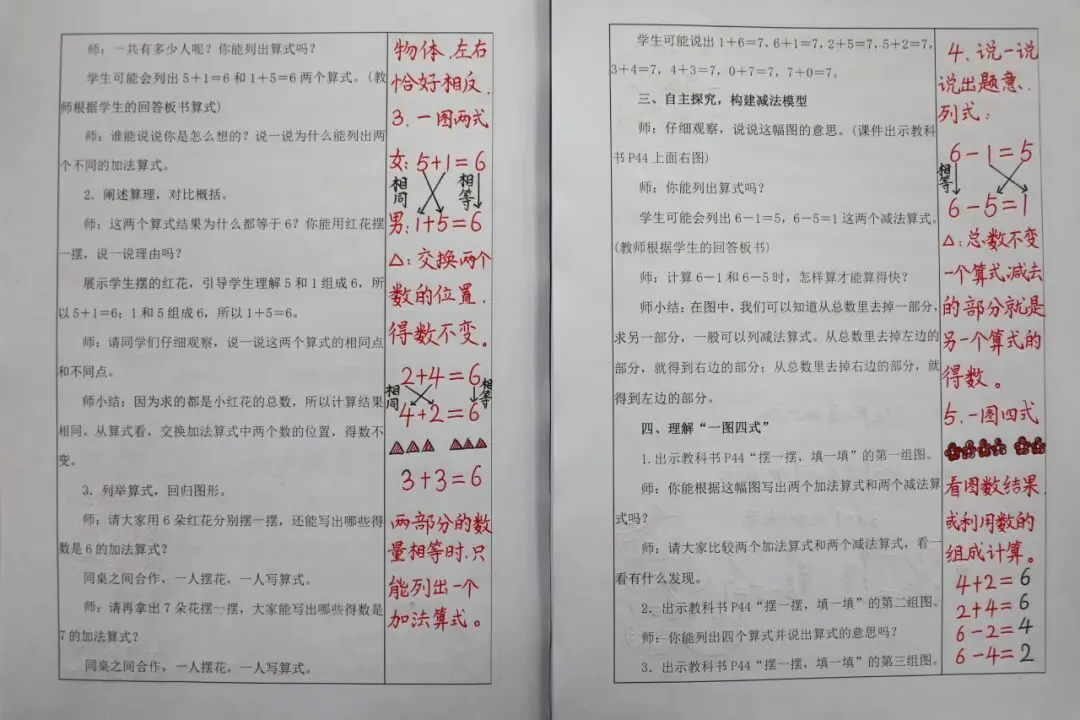 师：一共有多少人呢？你能列出算式吗？
学生可能会列出 5＋1＝6 和 1＋5＝6 两个算式。(教
师根据学生的回答板书算式)
师：谁能说说你是怎么想的？说一说为什么能列出两
个不同的加法算式。
2．阐述算理，对比概括。
师：这两个算式结果为什么都等于 6？你能用红花摆
一摆，说一说理由吗？
展示学生摆的红花，引导学生理解 5 和 1 组成 6，所
以 5＋1＝6；1 和 5 组成 6，所以 1＋5＝6。
师：请同学们仔细观察，说一说这两个算式的相同点
和不同点。
师小结：因为求的都是小红花的总数，所以计算结果
相同。从算式看，交换加法算式中两个数的位置，得数不
变。
3．列举算式，回归图形。
师：请大家用 6 朵红花分别摆一摆，还能写出哪些得
数是 6 的加法算式？
同桌之间合作，一人摆花，一人写算式。
师：请再拿出 7 朵花摆一摆，大家能写出哪些得数是
7 的加法算式？
同桌之间合作，一人摆花，一人写算式。
物体、左右
恰好相反．
3．一图两式
女：5+1=6
相同
相等
男：1+5=6
△：交换两个
数的位置，
得数不变。
2+4=6
相同
相等
4+2=6
3+3=6
两部分的数
量相等时，只
能列出一个
加法算式。
学生可能说出 1＋6＝7，6＋1＝7，2＋5＝7，5＋2＝7，
3＋4＝7，4＋3＝7，0＋7＝7，7＋0＝7。
三、自主探究，构建减法模型
师：仔细观察，说说这幅图的意思。(课件出示教科
书 P44 上面右图)
师：你能列出算式吗？
学生可能会列出 6－1＝5，6－5＝1 这两个减法算式。
(教师根据学生的回答板书)
师：计算 6－1 和 6－5 时，怎样算才能算得快？
师小结：在图中，我们可以知道从总数里去掉一部分，
求另一部分，一般可以列减法算式。从总数里去掉左边的
部分，就得到右边的部分；从总数里去掉右边的部分，就
得到左边的部分。
四、理解“一图四式”
1.出示教科书 P44“摆一摆，填一填”的第一组图。
师：你能根据这幅图写出两个加法算式和两个减法算
式吗？
师：请大家比较两个加法算式和两个减法算式，看一
看有什么发现。
2．出示教科书 P44“摆一摆，填一填”的第二组图。
师：你能列出四个算式并说出算式的意思吗？
3．出示教科书 P44“摆一摆，填一填”的第三组图。
4．说一说
说出题意、
列式：
6-1=5
相等
6-5=1
△：总数不变
一个算式减去
的部分就是
另一个算式的
得数。
5．一图四式
看图数结果，
或利用数的
组成计算。
4+2=6
2+4=6
6-2=4
6-4=2